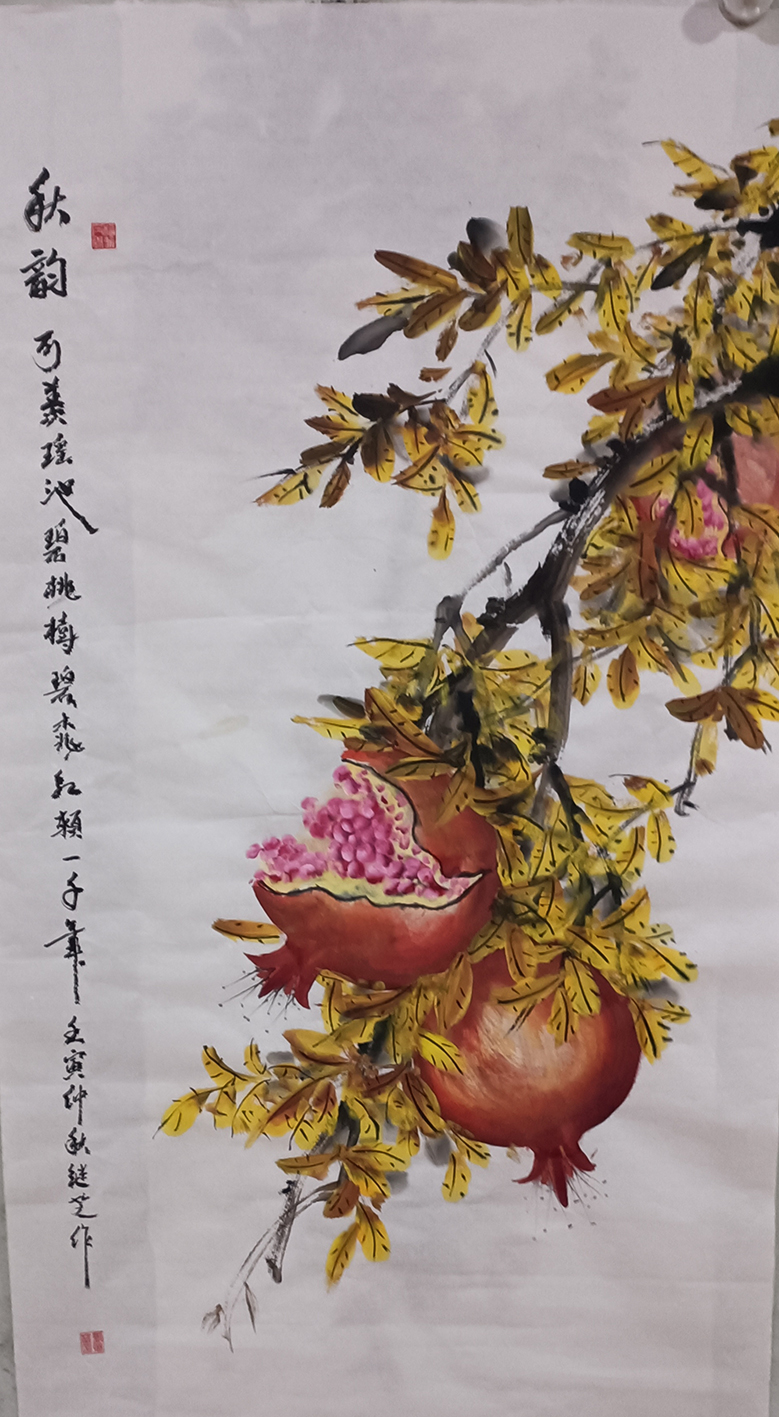 秋韵 可羡瑶池碧桃樹碧桃红頰一千年 壬寅仲秋继芝作